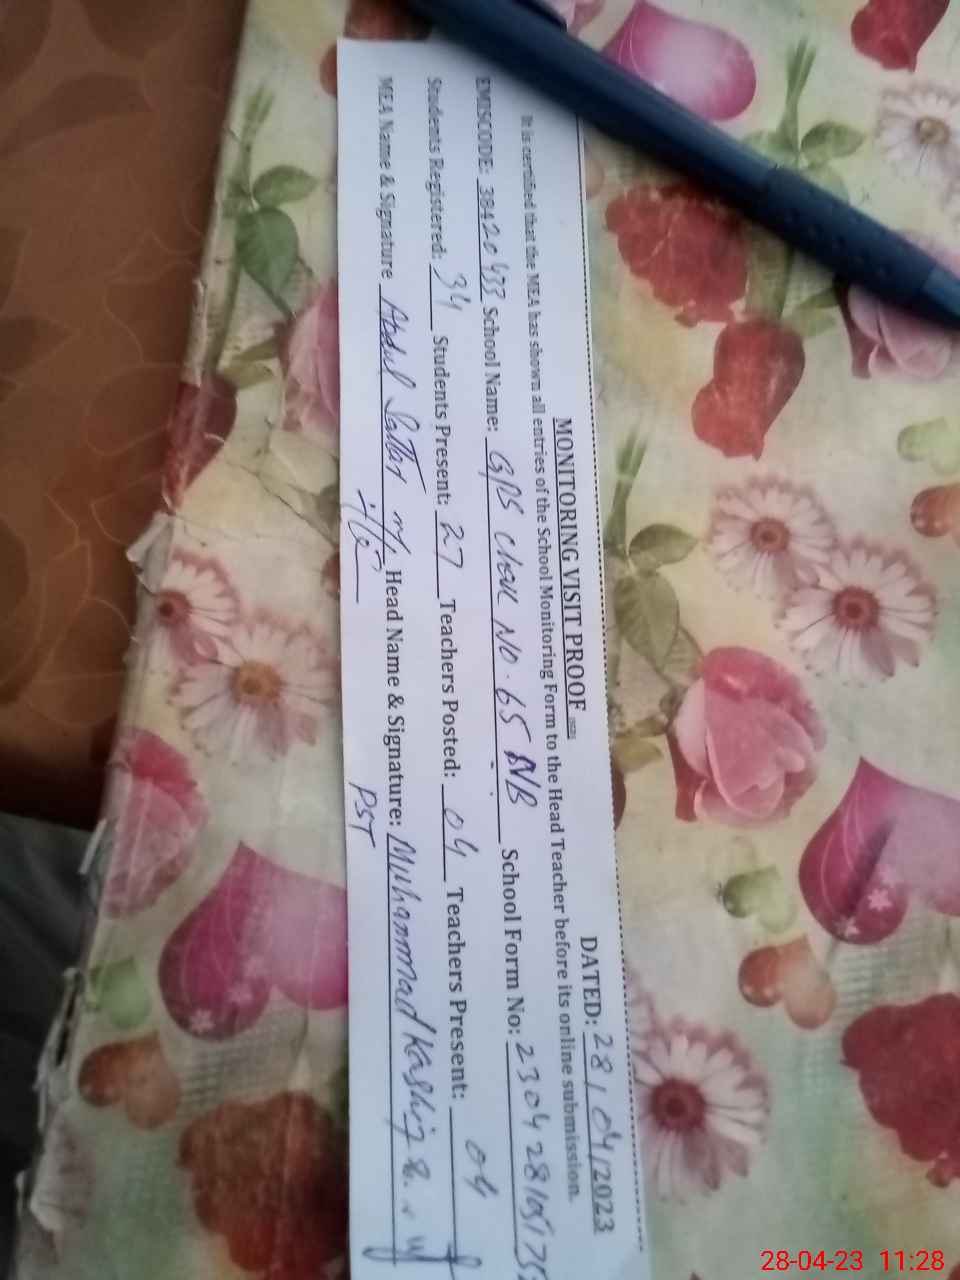 MONITORING VISIT PROOF
DATED: 28/04/2023
It is certified that the MEA has shown all entries of the School Monitoring Form to the Head Teacher before its online submission.
EMISCODE: 38420433 School Name: GPS Chak No. 65 NB School Form No:
Students Registered: 34 Students Present: 27 Teachers Posted: 04 Teachers Present: 04
MEA Name & Signature Abdul Sattar Head Name & Signature: Muhammad Kashif
PST
28-04-23 11:28